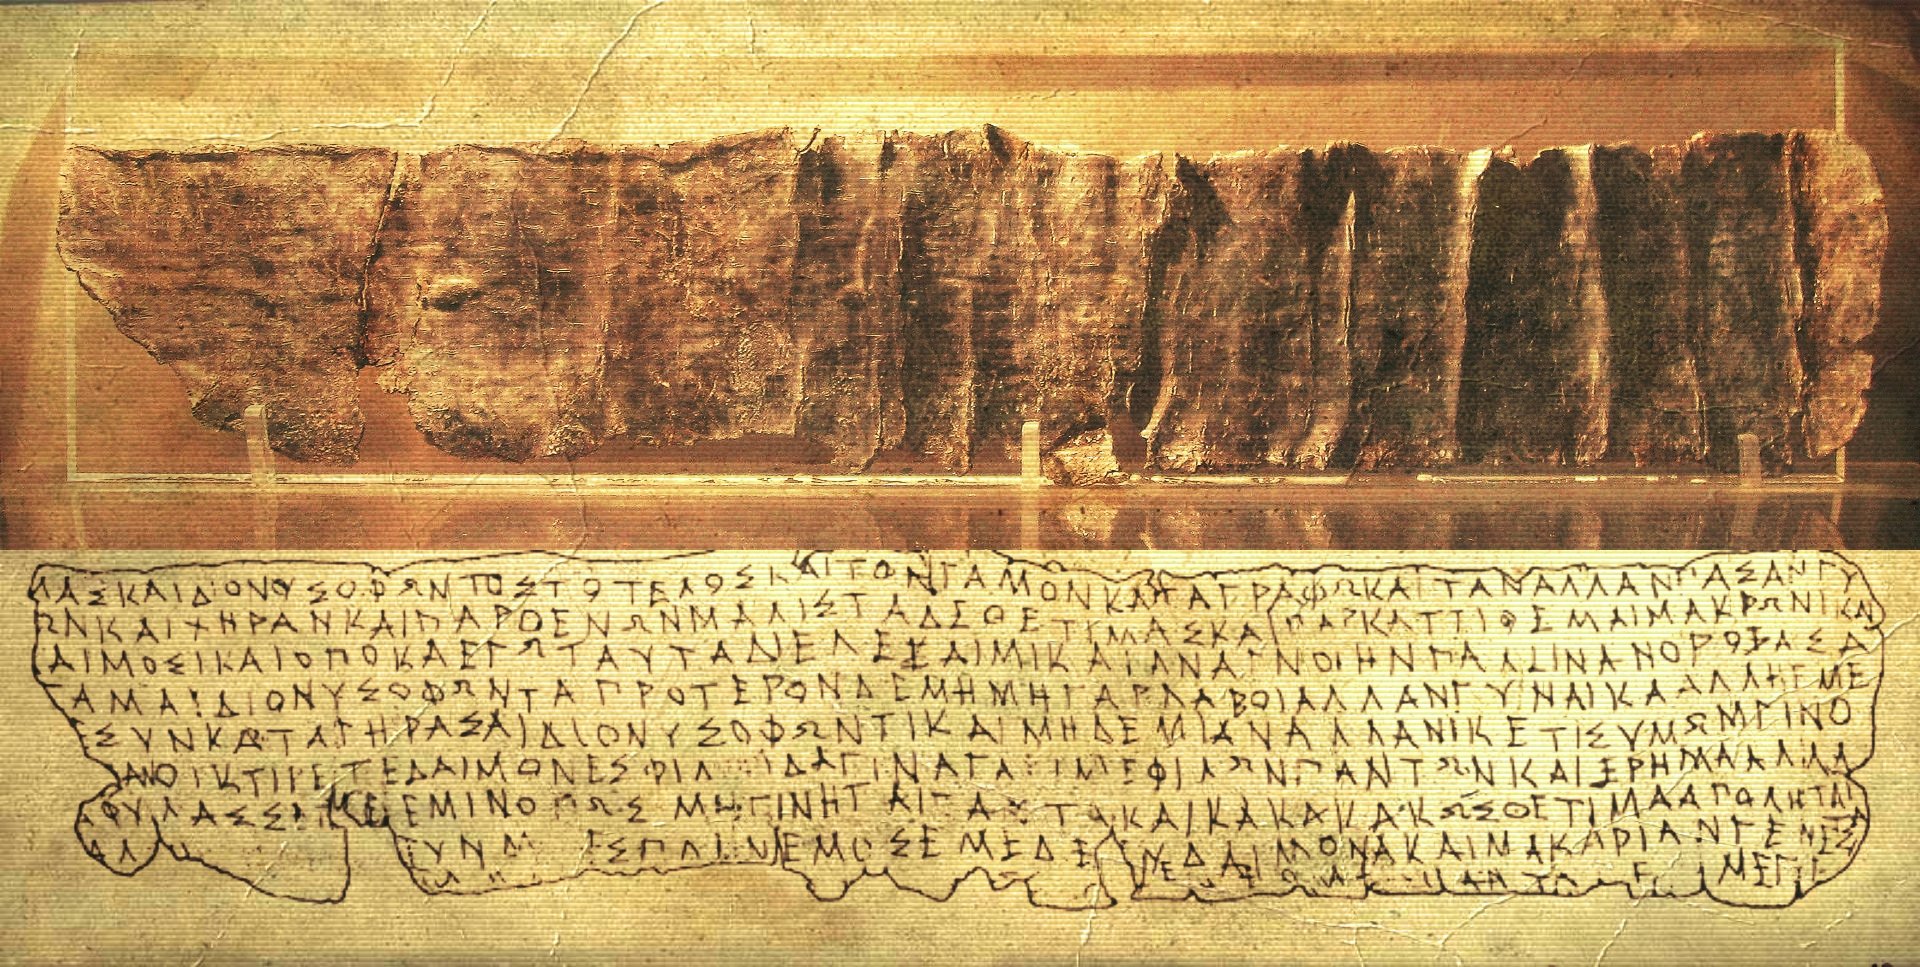 ΜΑΣΚΑΙΔΙΟΝΥΣΟΦΩΝΤΟΣΤΟΤΕΛΟΣΚΑΙΤΟΝΓΑΜΟΝΚΑΤΑΓΡΑΦΩΚΑΙΤΑΝΑΛΛΑΝΠΑΣΑΝΓΥ
ΩΝΚΑΙΧΗΡΑΝΚΑΙΠΑΡΘΕΝΩΝΜΑΛΙΣΤΑΔΕΘΕΤΙΜΑΣΚΑΙΠΑΡΚΑΤΤΙΘΕΜΑΙΜΑΚΡΩΝΙΚΑΙ
ΔΑΙΜΟΣΙΚΑΙΟΠΟΚΑΕΓΩΤΑΥΤΑΔΙΕΛΕΞΑΙΜΙΚΑΙΑΝΑΓΝΟΙΗΝΠΑΛΙΝΑΝΟΡΟΞΑΣΑ
ΓΑΜΑΙΔΙΟΝΥΣΟΦΩΝΤΑΠΡΟΤΕΡΟΝΔΕΜΗΜΗΓΑΡΛΑΒΟΙΑΛΛΑΝΓΥΝΑΙΚΑΑΛΛΗΕΜΕ
ΕΣΥΝΚΑΤΑΓΗΡΑΣΑΙΔΙΟΝΥΣΟΦΩΝΤΙΚΑΙΜΗΔΕΜΙΑΝΑΛΛΑΝΙΚΕΤΙΣΥΜΩΜΓΙΝΟ
ΑΝΟΙΚΤΙΡΕΤΕΔΑΙΜΟΝΕΣΦΙΛ ΙΔΑΓΙΝΑΓΑ ΙΜΕΦΙΛΩΝΠΑΝΤΩΝΚΑΙΕΡΗΜΑΑΛΛΑ
ΑΦΥΛΑΣΣΕΤΕΕΜΙΝΟΠΩΣΜΗΓΙΝΗΤΑΙΤΑΥΤΑΚΑΙΚΑΚΑΚΑΚΩΣΘΕΤΙΜΑΑΠΟΛΗΤΑΙ
ΑΛ ΥΝΜ ΕΣΠΛΗΝΕΜΟΣΕΜΕΔΕΕΥΔΑΙΜΟΝΑΚΑΙΜΑΚΑΡΙΑΝΓΕΝΕΣΤΑΙ
ΑΝΤΟ Ε ΜΕΓΕ